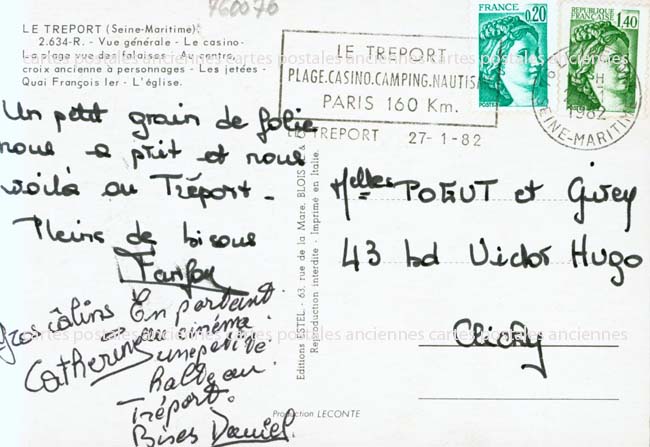 760076
LE TREPORT (Seine-Maritime)
2.634-R. - Vue générale - Le casino-
La plage vue des falaises - Au centre,
croix ancienne à personnages - Les jetées -
Quai François Ier - L'église.
LE TREPORT
PLAGE.CASINO.CAMPING.NAUTIS
PARIS 160 Km.
LE TREPORT 27-1-82
FRANCE
0,20
POSTES
REPUBLIQUE FRANÇAISE
1,40
1982
SEINE-MARITIME
cartes postales anciennes cartes postales anciennes cartes postales anciennes
Un petit grain de folie
nous a prit et nous
voilà au Tréport -
Pleins de bisous
Gros câlins
Catherine
En partant
au cinéma
une petite
halte au
Tréport.
Bises Daniel.
Editions ESTEL - 63, rue de la Mare, BLOIS
Reproduction interdite - Imprimé en Italie.
Melles POTUT et Givey
43 bd Victor Hugo
Clichy
cartes postales anciennes cartes postales anciennes cartes postales anciennes
Production LECONTE